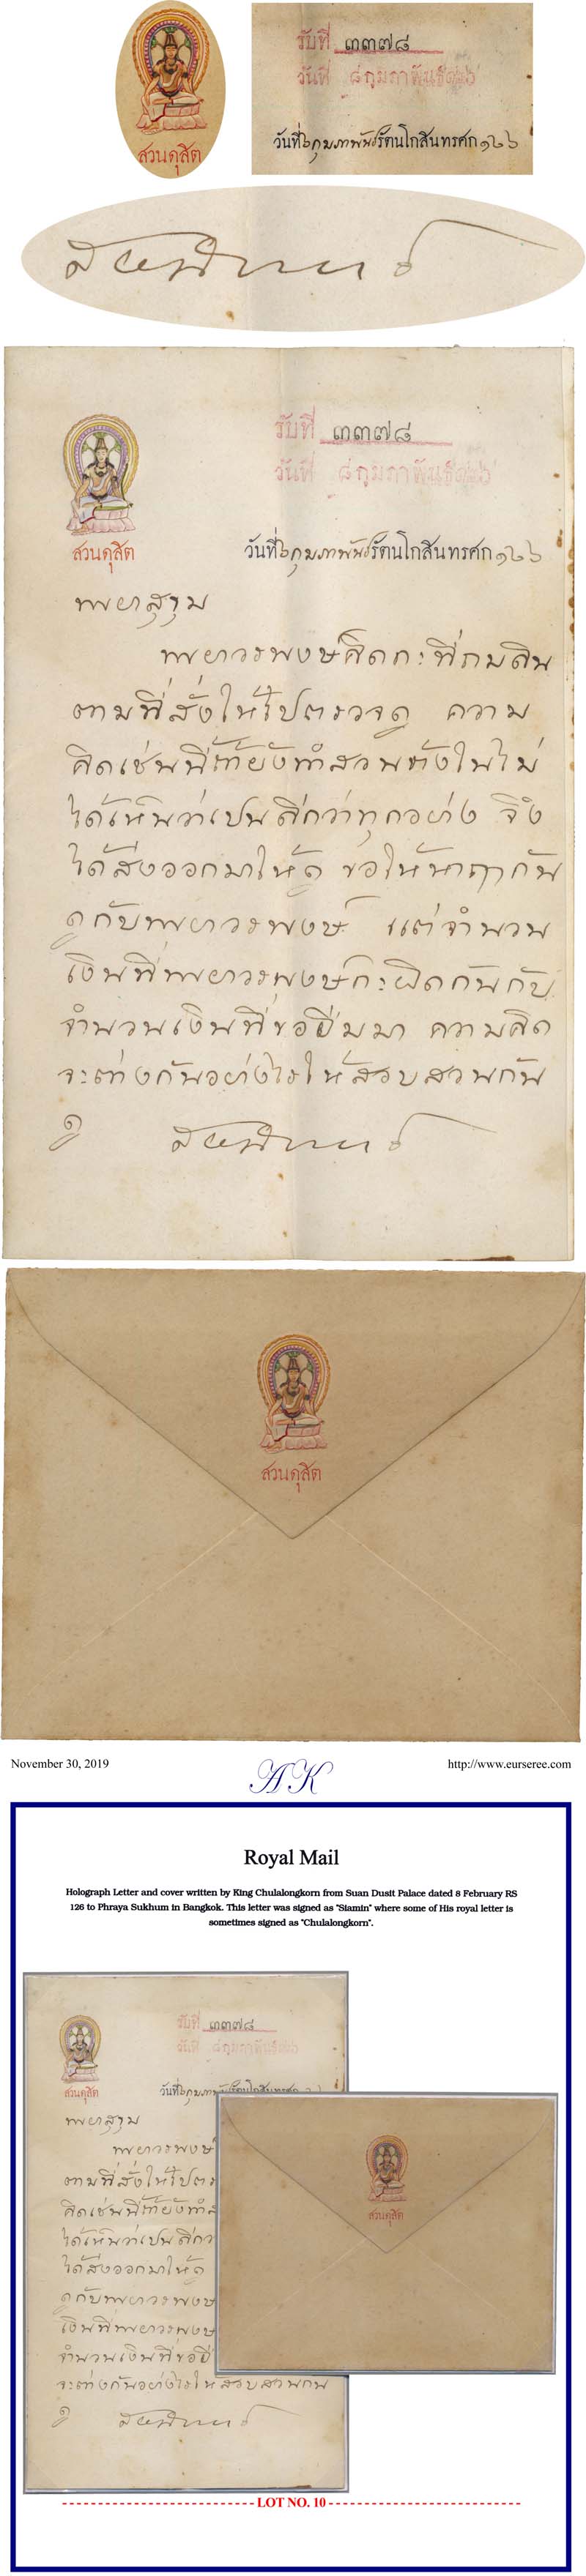 สวนดุสิต
รับที่ ๓๓๗๘
วันที่ ๘ กุมภาพันธ์ ๑๒๖
วันที่ ๖ กุมภาพันธ์ รัตนโกสินทรศก ๑๒๖
สยามินทร์
สวนดุสิต
รับที่ ๓๓๗๘
วันที่ ๘ กุมภาพันธ์ ๑๒๖
วันที่ ๖ กุมภาพันธ์ รัตนโกสินทรศก ๑๒๖
พยาสุขุม
พยาวรพงษ์คิดกะที่ถมดิน
ตามที่สั่งให้ไปตรวจดู ความ
คิดเช่นนี้ถ้ายังทำสวนข้างในไม่
ได้เห็นว่าเปนดีกว่าทุกอย่าง จึง
ได้ส่งออกมาให้ดู ขอให้หาฤากัน
ดูกับพยาวรพงษ์ แต่จำนวน
เงินที่พยาวรพงษ์กะผิดกันกับ
จำนวนเงินที่ขอยืมมา ความคิด
จะต่างกันอย่างไรให้สอบสวนกัน
ดู สยามินทร์
สวนดุสิต
November 30, 2019
AK
http://www.eurseree.com
Royal Mail
Holograph Letter and cover written by King Chulalongkorn from Suan Dusit Palace dated 8 February RS
126 to Phraya Sukhum in Bangkok. This letter was signed as "Siamin" where some of His royal letter is
sometimes signed as "Chulalongkorn".
รับที่ ๓๓๗๘
วันที่ ๘ กุมภาพันธ์ ๑๒๖
สวนดุสิต
วันที่ ๖ กุมภาพันธ์ รัตนโกสินทรศก
พยาสุขุม
พยาวรพงษ์
ตามที่สั่งให้ไปตร
คิดเช่นนี้ถ้ายังทำส
ได้เห็นว่าเปนดีกว
ได้ส่งออกมาให้ดู
ดูกับพยาวรพงษ
เงินที่พยาวรพงษ
จำนวนเงินที่ขอยื
จะต่างกันอย่างไรให้สอบสวนกัน
ดู สยามินทร์
สวนดุสิต
LOT NO. 10